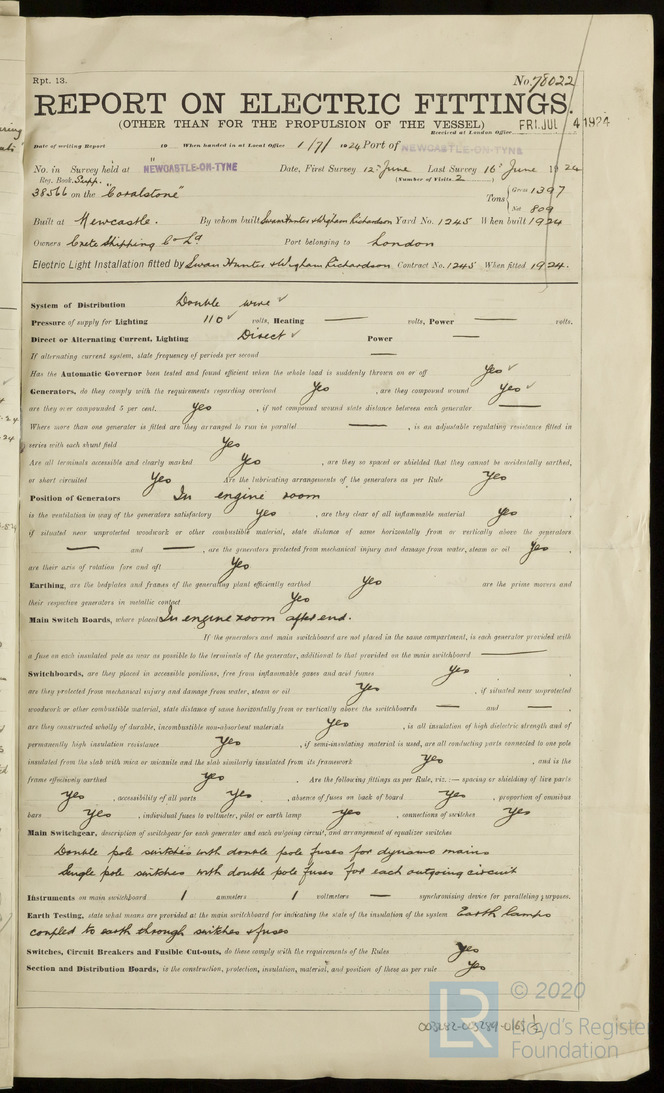 Rpt. 13.
No. 78022
REPORT ON ELECTRIC FITTINGS.
(OTHER THAN FOR THE PROPULSION OF THE VESSEL)
Received at London Office
FRI. JUL 4 1924
Date of writing Report 19 When handed in at Local Office 1/7/1924 Port of NEWCASTLE-ON-TYNE
No. in Survey held at NEWCASTLE-ON-TYNE Date, First Survey 12th June Last Survey 16th June 1924
Reg. Book. Supp. (Number of Visits 2
38566 on the "Coralstone" Tons { Gross 1397
Net 809
Built at Newcastle. By whom built Swan Hunter & Wigham Richardson Yard No. 1245 When built 1924
Owners Crete Shipping Co Ld Port belonging to London
Electric Light Installation fitted by Swan Hunter & Wigham Richardson Contract No. 1245 When fitted 1924.
System of Distribution Double wire ✓
Pressure of supply for Lighting 110 ✓ volts, Heating — volts, Power — volts.
Direct or Alternating Current, Lighting Direct ✓ Power —
If alternating current system, state frequency of periods per second —
Has the Automatic Governor been tested and found efficient when the whole load is suddenly thrown on or off Yes ✓
Generators, do they comply with the requirements regarding overload Yes , are they compound wound Yes ✓
are they over compounded 5 per cent. Yes , if not compound wound state distance between each generator —
Where more than one generator is fitted are they arranged to run in parallel — , is an adjustable regulating resistance fitted in
series with each shunt field Yes
Are all terminals accessible and clearly marked Yes , are they so spaced or shielded that they cannot be accidentally earthed,
or short circuited Yes Are the lubricating arrangements of the generators as per Rule Yes
Position of Generators In engine room
is the ventilation in way of the generators satisfactory Yes , are they clear of all inflammable material Yes
if situated near unprotected woodwork or other combustible material, state distance of same horizontally from or vertically above the generators
— and — , are the generators protected from mechanical injury and damage from water, steam or oil Yes
are their axis of rotation fore and aft Yes
Earthing, are the bedplates and frames of the generating plant efficiently earthed Yes are the prime movers and
their respective generators in metallic contact Yes
Main Switch Boards, where placed In engine room after end.
If the generators and main switchboard are not placed in the same compartment, is each generator provided with
a fuse on each insulated pole as near as possible to the terminals of the generator, additional to that provided on the main switchboard —
Switchboards, are they placed in accessible positions, free from inflammable gases and acid fumes Yes
are they protected from mechanical injury and damage from water, steam or oil Yes , if situated near unprotected
woodwork or other combustible material, state distance of same horizontally from or vertically above the switchboards — and — ,
are they constructed wholly of durable, incombustible non-absorbent materials Yes , is all insulation of high dielectric strength and of
permanently high insulation resistance Yes , if semi-insulating material is used, are all conducting parts connected to one pole
insulated from the slab with mica or micanite and the slab similarly insulated from its framework Yes , and is the
frame effectively earthed Yes . Are the following fittings as per Rule, viz.:— spacing or shielding of live parts
Yes , accessibility of all parts Yes , absence of fuses on back of board Yes , proportion of omnibus
bars Yes , individual fuses to voltmeter, pilot or earth lamp Yes , connections of switches Yes
Main Switchgear, description of switchgear for each generator and each outgoing circuit, and arrangement of equalizer switches
Double pole switches with double pole fuses for dynamo mains
Single pole switches with double pole fuses for each outgoing circuit
Instruments on main switchboard 1 ammeters 1 voltmeters — synchronising device for paralleling purposes.
Earth Testing, state what means are provided at the main switchboard for indicating the state of the insulation of the system Earth lamps
coupled to earth through switches & fuses
Switches, Circuit Breakers and Fusible Cut-outs, do these comply with the requirements of the Rules Yes
Section and Distribution Boards, is the construction, protection, insulation, material, and position of these as per rule Yes
© 2020
LR Lloyd's Register
Foundation
003282-003289-0165 1/2